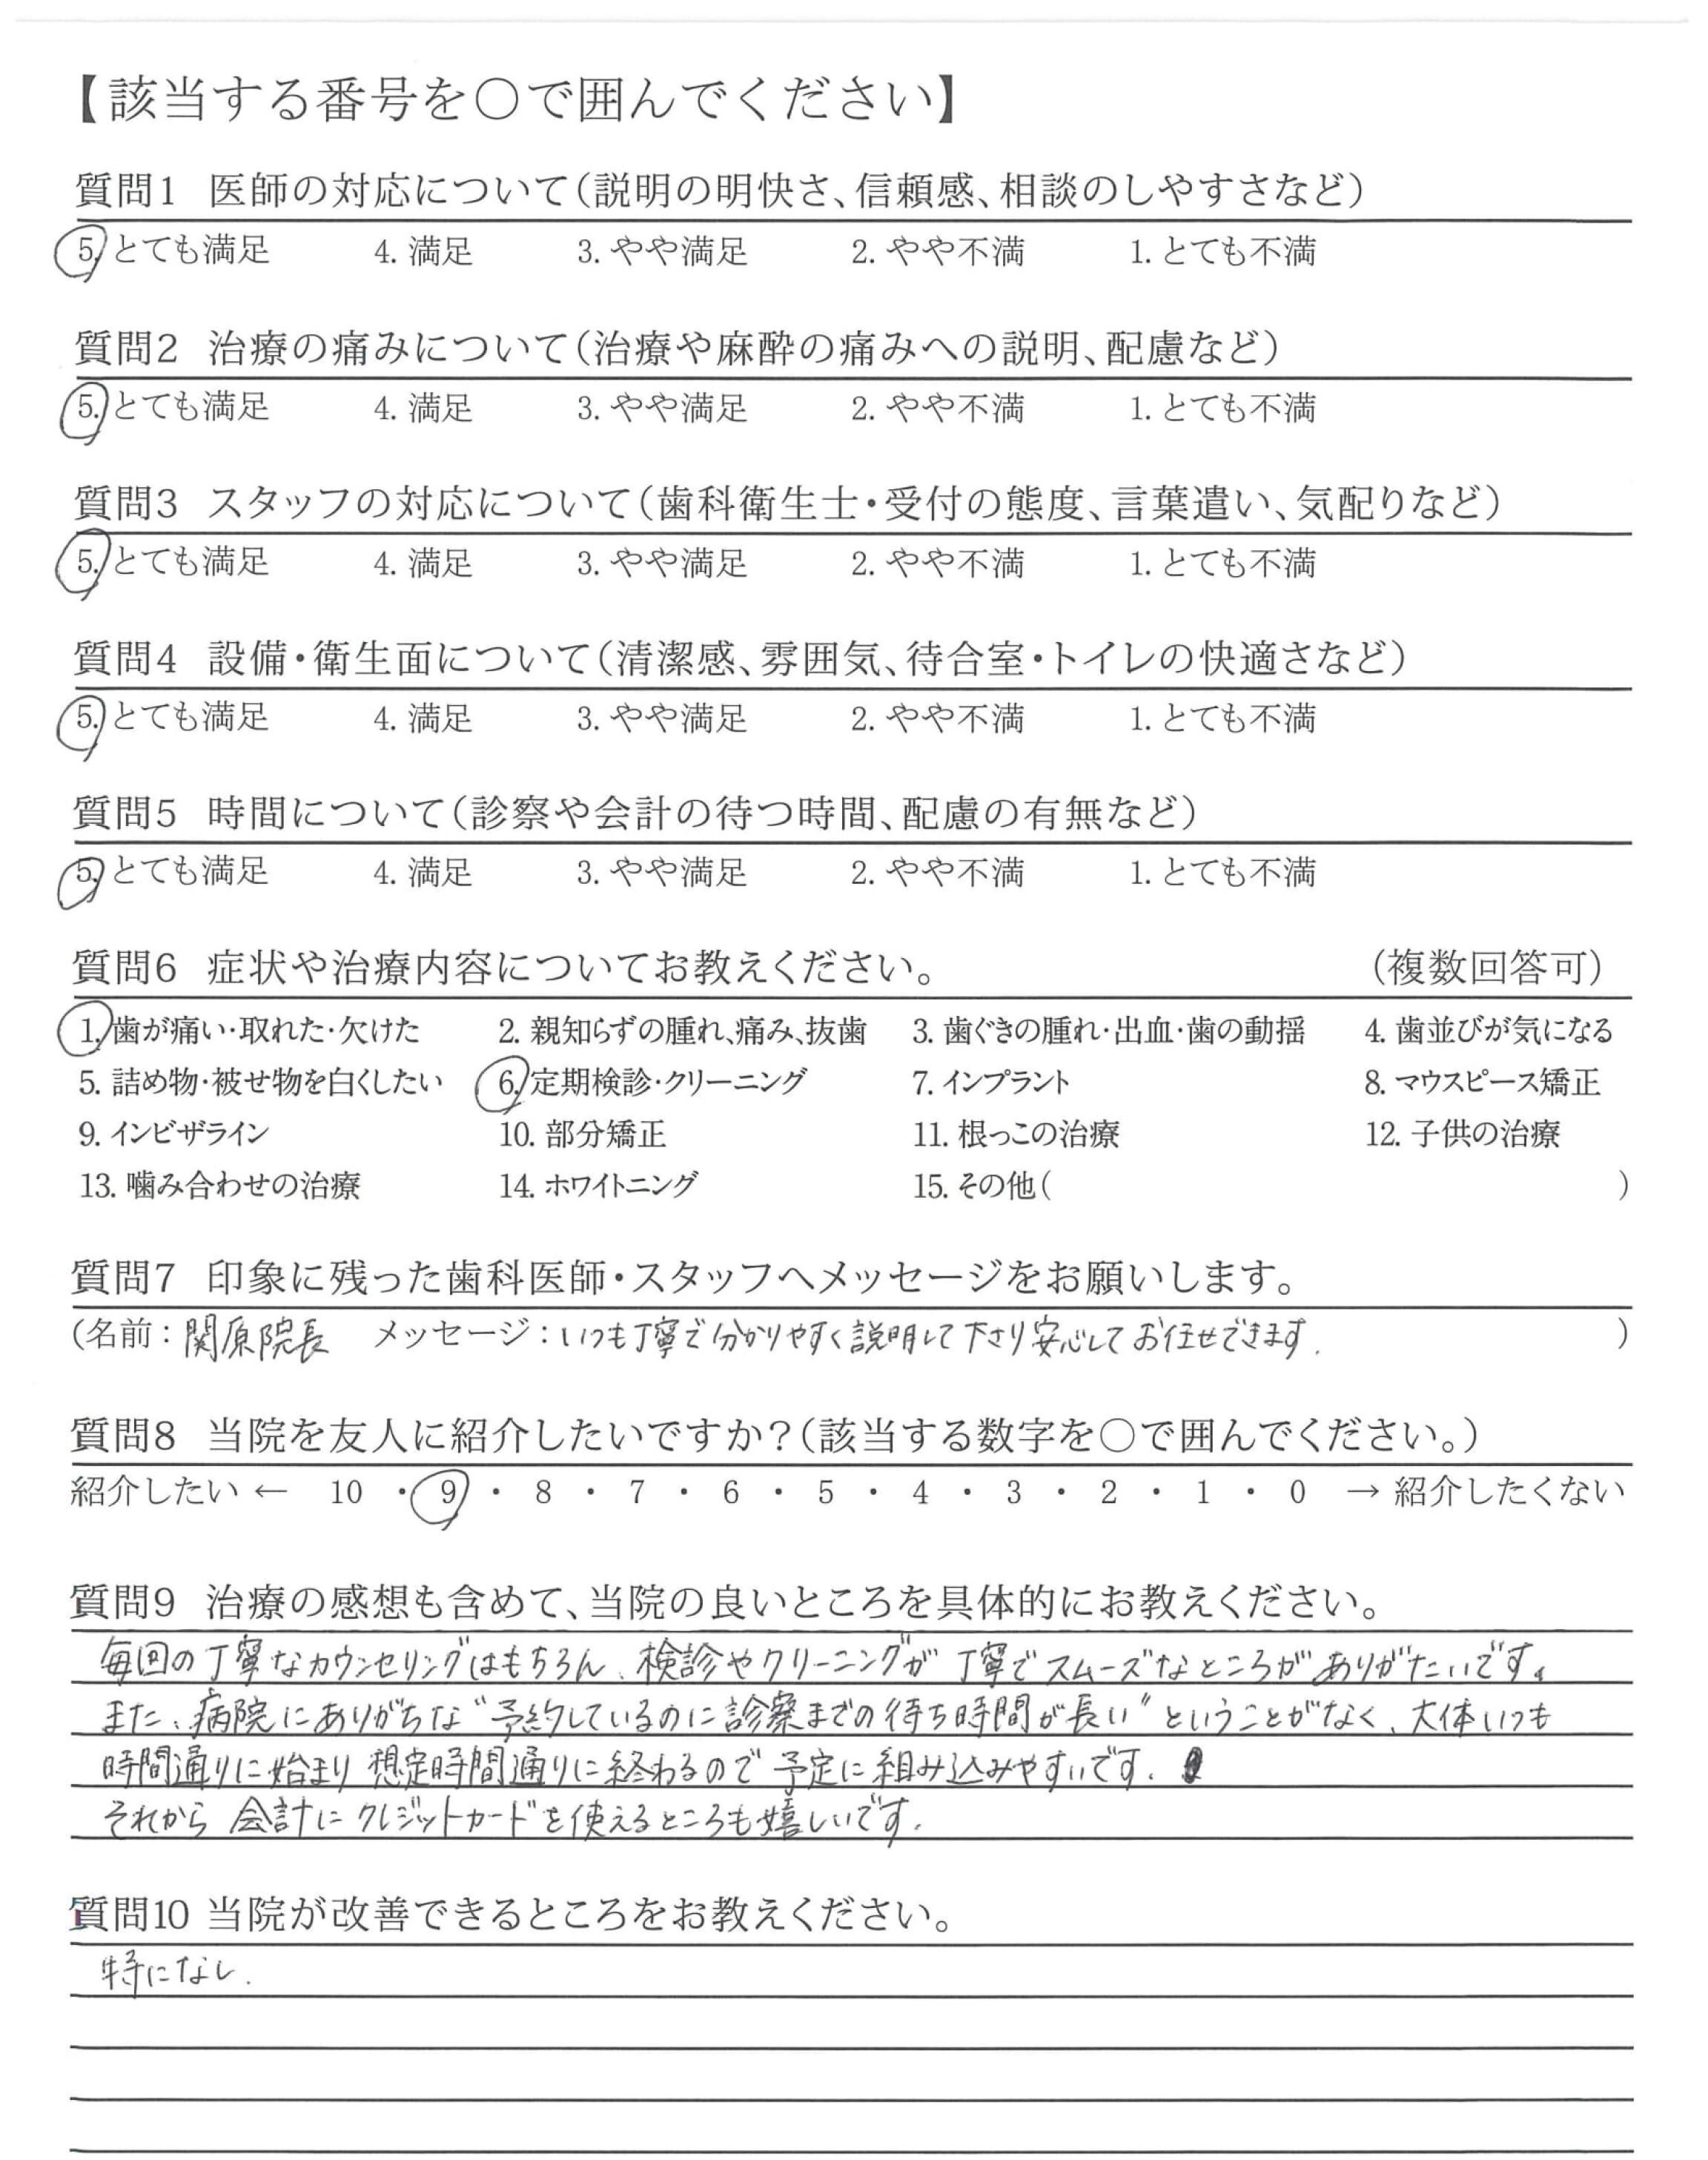 【該当する番号を〇で囲んでください】
質問1 医師の対応について(説明の明快さ、信頼感、相談のしやすさなど)
5. とても満足 4. 満足 3. やや満足 2. やや不満 1. とても不満
質問2 治療の痛みについて(治療や麻酔の痛みへの説明、配慮など)
5. とても満足 4. 満足 3. やや満足 2. やや不満 1. とても不満
質問3 スタッフの対応について(歯科衛生士・受付の態度、言葉遣い、気配りなど)
5. とても満足 4. 満足 3. やや満足 2. やや不満 1. とても不満
質問4 設備・衛生面について(清潔感、雰囲気、待合室・トイレの快適さなど)
5. とても満足 4. 満足 3. やや満足 2. やや不満 1. とても不満
質問5 時間について(診察や会計の待つ時間、配慮の有無など)
5. とても満足 4. 満足 3. やや満足 2. やや不満 1. とても不満
質問6 症状や治療内容についてお教えください。 (複数回答可)
1. 歯が痛い・取れた・欠けた 2. 親知らずの腫れ、痛み、抜歯 3. 歯ぐきの腫れ・出血・歯の動揺 4. 歯並びが気になる
5. 詰め物・被せ物を白くしたい 6. 定期検診・クリーニング 7. インプラント 8. マウスピース矯正
9. インビザライン 10. 部分矯正 11. 根っこの治療 12. 子供の治療
13. 噛み合わせの治療 14. ホワイトニング 15. その他( )
質問7 印象に残った歯科医師・スタッフへメッセージをお願いします。
(名前:関原院長 メッセージ:いつも丁寧で分かりやすく説明して下さり安心してお任せできます. )
質問8 当院を友人に紹介したいですか?(該当する数字を〇で囲んでください。)
紹介したい ← 10 ・ 9 ・ 8 ・ 7 ・ 6 ・ 5 ・ 4 ・ 3 ・ 2 ・ 1 ・ 0 → 紹介したくない
質問9 治療の感想も含めて、当院の良いところを具体的にお教えください。
毎回の丁寧なカウンセリングはもちろん、検診やクリーニングが丁寧でスムーズなところがありがたいです。
また、病院にありがちな"予約しているのに診察までの待ち時間が長い"ということがなく、大体いつも
時間通りに始まり想定時間通りに終わるので予定に組み込みやすいです.
それから会計にクレジットカードを使えるところも嬉しいです.
質問10 当院が改善できるところをお教えください。
特になし.